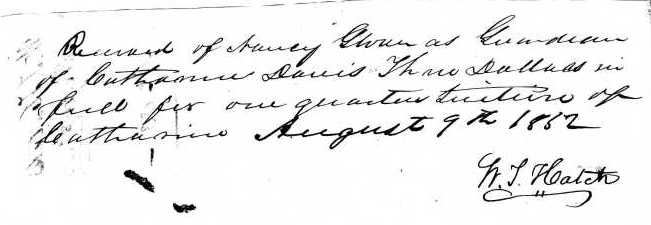 Received of Nancy Glover as Guardian
of Catharine Davis Three Dollars in
full for one quarter tuition of
Catharine August 9th 1852
W. T. Hatch